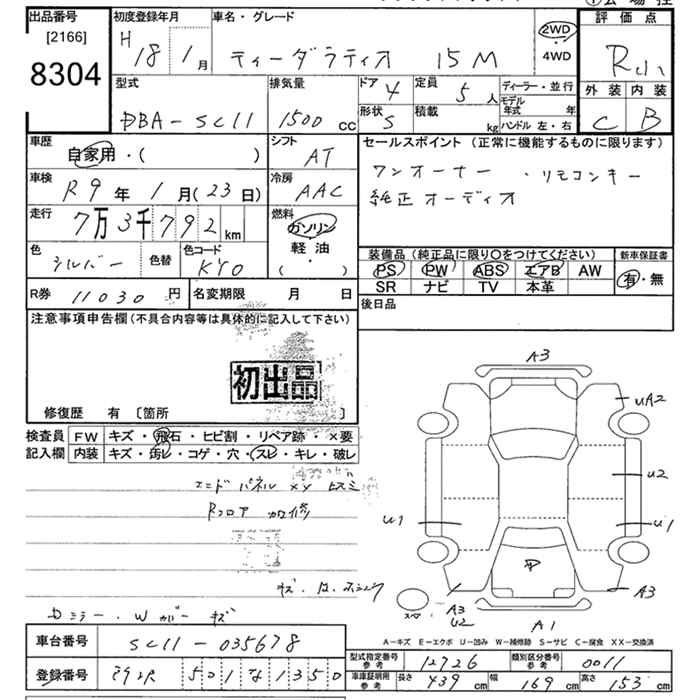 出品番号 初度登録年月 車名・グレード 評価点
[2166] H 18年 1月 ティーダラティオ 15M 2WD 4WD
8304
型式 排気量 ドア 4 定員 5人 ディーラー・並行 外装 内装
DBA-SC11 1500cc 形状 S 積載 kg モデル年式 年 ハンドル 左・右 C B
車歴 シフト セールスポイント (正常に機能するものに限ります)
自家用・( ) AT ワンオーナー ・リモコンキー
車検 R9年 1月(23日) 冷房 AAC 純正オーディオ
走行 7万3千792km 燃料 ガソリン
軽油
( )
色 シルバー 色替 色コード KY0 装備品 (純正品に限り○をつけてください) 新車保証書
PS PW ABS エアB AW 有・無
SR ナビ TV 本革
R券 11030円 名変期限 月 日 後日品
注意事項申告欄(不具合内容等は具体的に記入して下さい)
初出品
修復歴 有 〔箇所 〕
検査員 FW キズ・飛石・ヒビ割・リペア跡・×要
記入欄 内装 キズ・汚レ・コゲ・穴・スレ・キレ・破レ
エンドパネル XX ヒズミ
Rフロア 加修
Dミラー・Wカバー キズ
A3
UA2
U2
U1 U1
A3
A3
U2
A1
A-キズ E-エクボ U-凹み W-補修跡 S-サビ C-腐食 XX-交換済
車台番号 SC11-035678 型式指定番号 参考 12726 類別区分番号 参考 0011
登録番号 501な1350 車庫証明用 参考 長さ 439cm 幅 169cm 高さ 153cm